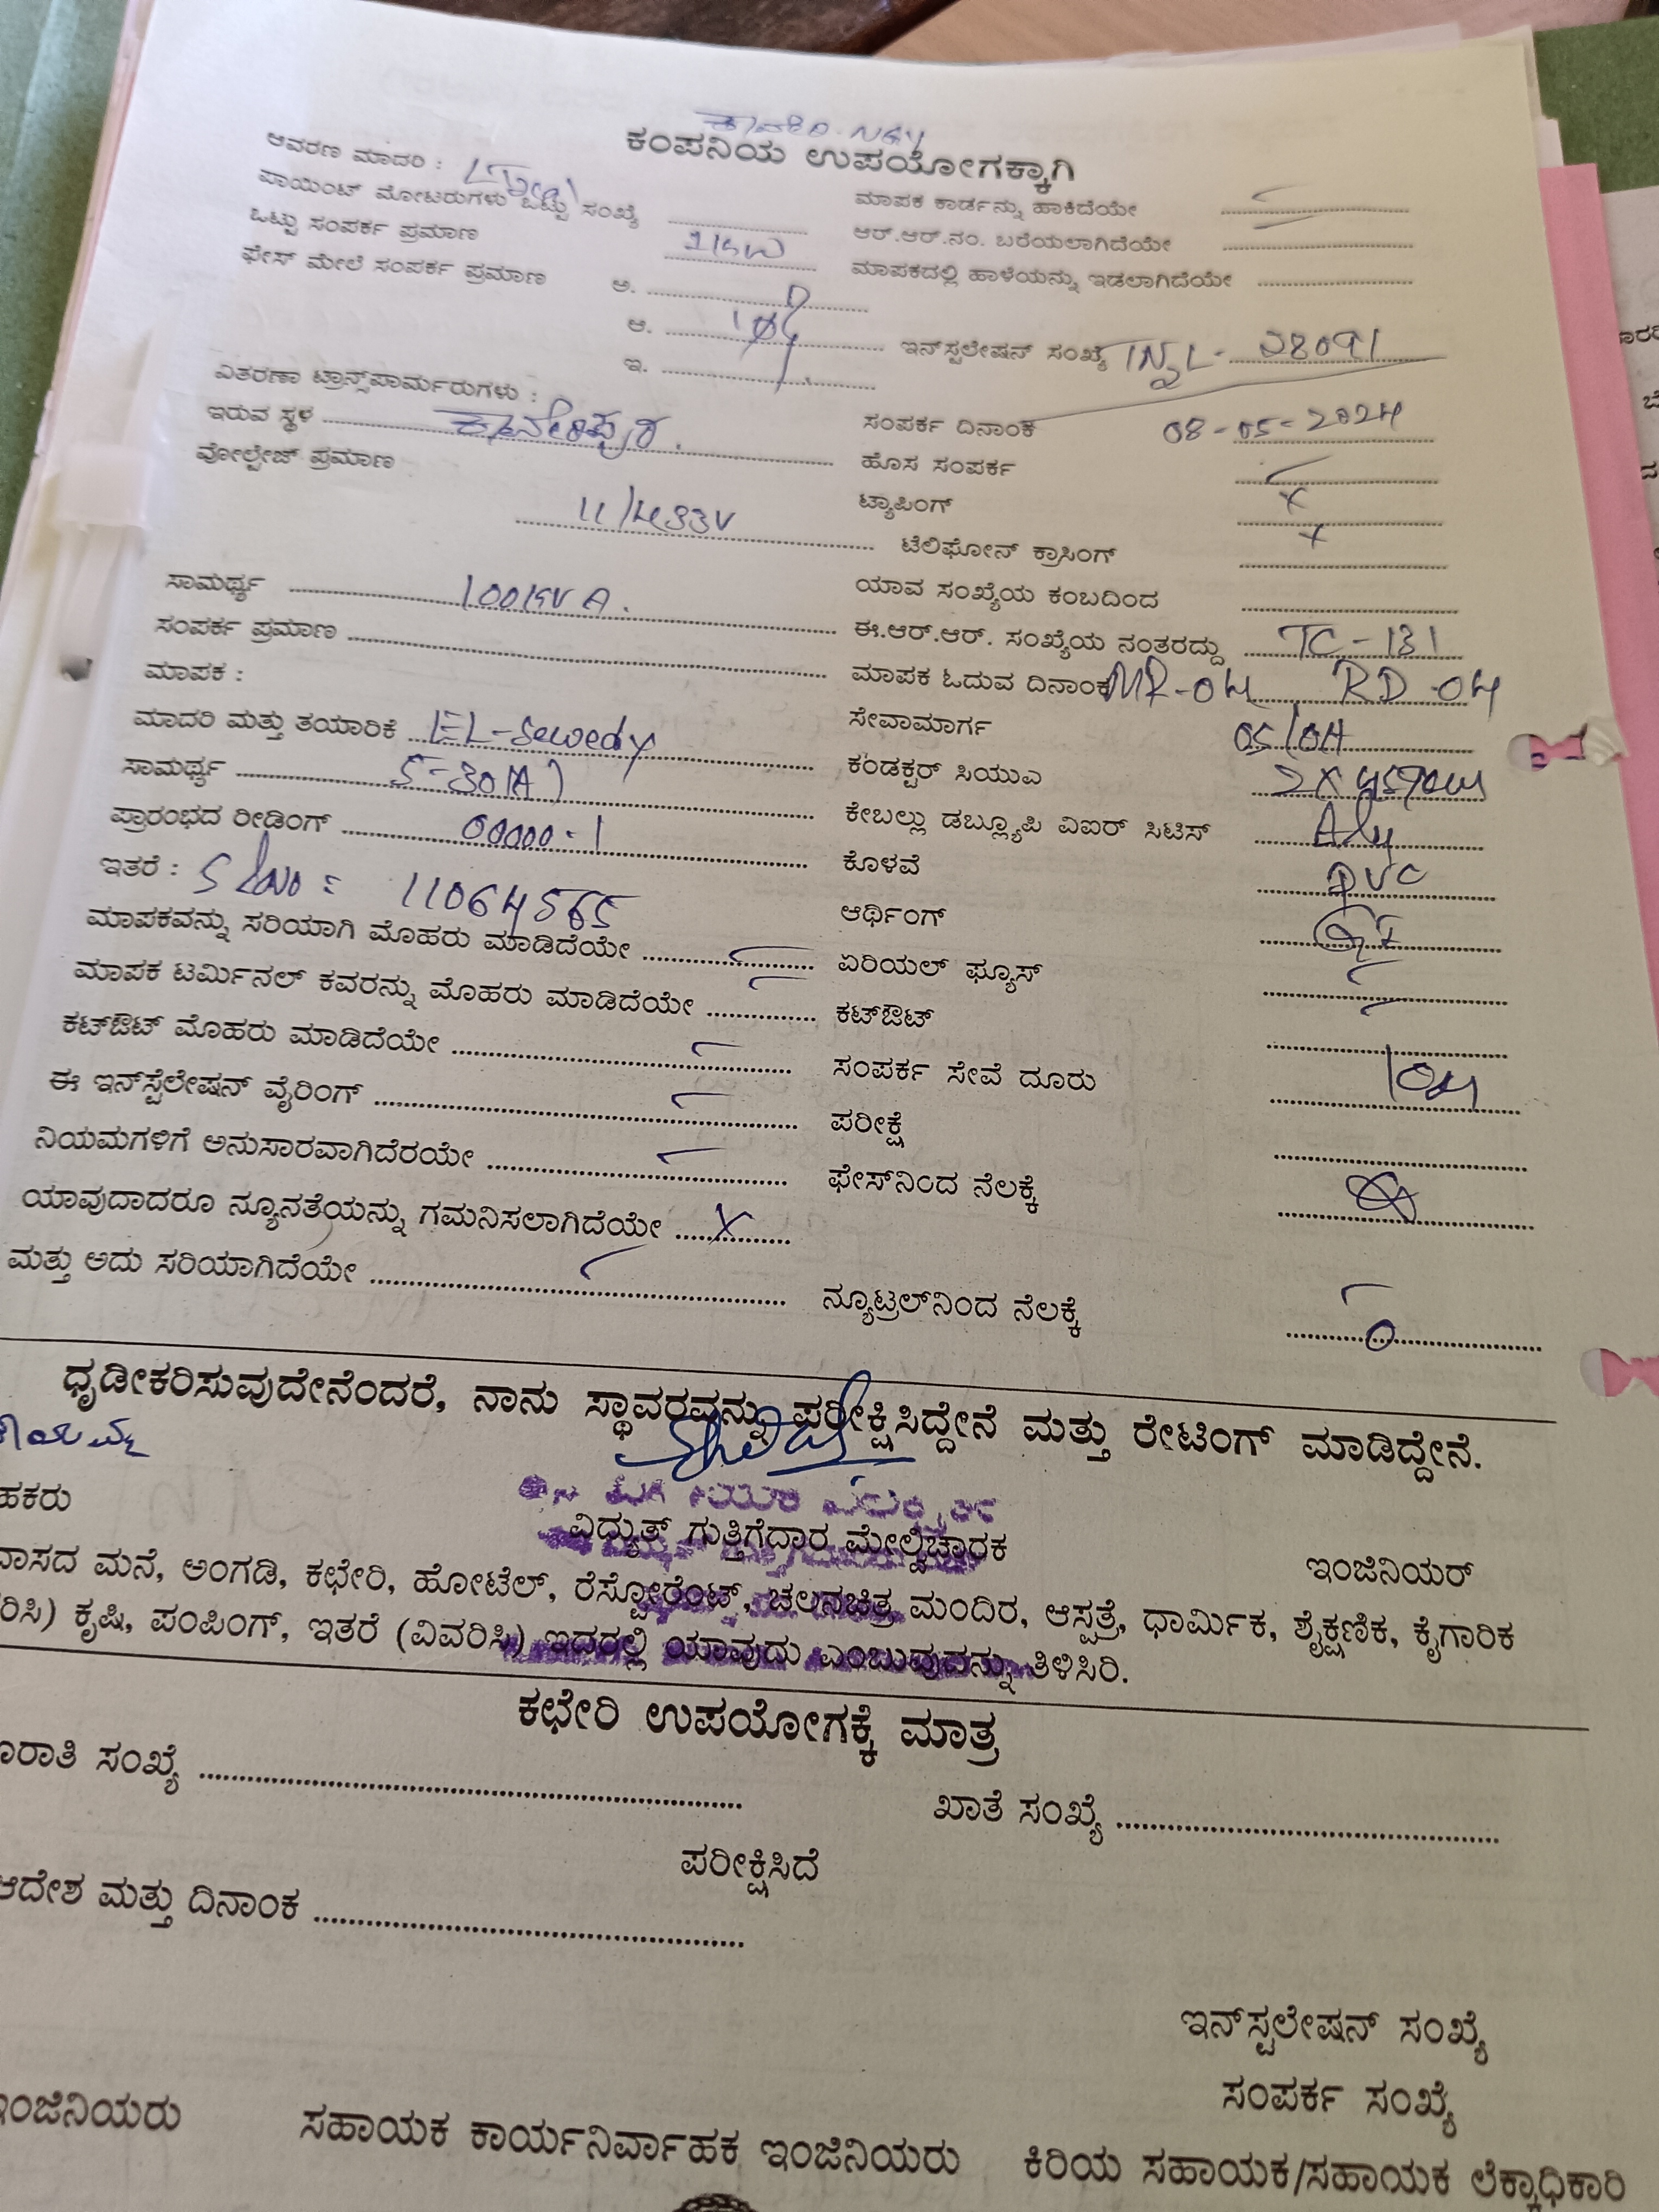 ಕಂಪನಿಯ ಉಪಯೋಗಕ್ಕಾಗಿ
ಆವರಣ ಮಾದರಿ :
ಪಾಯಿಂಟ್ ಮೋಟರುಗಳು ಒಟ್ಟು ಸಂಖ್ಯೆ
ಮಾಪಕ ಕಾರ್ಡನ್ನು ಹಾಕಿದೆಯೇ
ಒಟ್ಟು ಸಂಪರ್ಕ ಪ್ರಮಾಣ
ಆರ್.ಆರ್.ನಂ. ಬರೆಯಲಾಗಿದೆಯೇ
ಫೇಸ್ ಮೇಲೆ ಸಂಪರ್ಕ ಪ್ರಮಾಣ ಅ.
ಮಾಪಕದಲ್ಲಿ ಹಾಳೆಯನ್ನು ಇಡಲಾಗಿದೆಯೇ
ಆ.
ಇನ್‌ಸ್ಟಲೇಷನ್ ಸಂಖ್ಯೆ 28091
ಇ.
ವಿತರಣಾ ಟ್ರಾನ್ಸ್‌ಪಾರ್ಮರುಗಳು :
ಇರುವ ಸ್ಥಳ
ಸಂಪರ್ಕ ದಿನಾಂಕ 08-05-2024
ವೋಲ್ಟೇಜ್ ಪ್ರಮಾಣ 11/433V
ಹೊಸ ಸಂಪರ್ಕ
ಟ್ಯಾಪಿಂಗ್ X
ಟೆಲಿಫೋನ್ ಕ್ರಾಸಿಂಗ್ X
ಸಾಮರ್ಥ್ಯ 100KVA.
ಯಾವ ಸಂಖ್ಯೆಯ ಕಂಬದಿಂದ
ಸಂಪರ್ಕ ಪ್ರಮಾಣ
ಈ.ಆರ್.ಆರ್. ಸಂಖ್ಯೆಯ ನಂತರದ್ದು TC-131
ಮಾಪಕ :
ಮಾಪಕ ಓದುವ ದಿನಾಂಕ MR-04 RD-04
ಮಾದರಿ ಮತ್ತು ತಯಾರಿಕೆ EL-Sewedy
ಸೇವಾಮಾರ್ಗ 05/04
ಸಾಮರ್ಥ್ಯ 5-30(A)
ಕಂಡಕ್ಟರ್ ಸಿಯುಎ
ಪ್ರಾರಂಭದ ರೀಡಿಂಗ್ 00000.1
ಕೇಬಲ್ಲು ಡಬ್ಲ್ಯೂಪಿ ವಿಐಆರ್ ಸಿಟಿಸ್ Aly
ಇತರೆ : Sl No = 11064565
ಕೊಳವೆ PVC
ಮಾಪಕವನ್ನು ಸರಿಯಾಗಿ ಮೊಹರು ಮಾಡಿದೆಯೇ
ಆರ್ಥಿಂಗ್ GI
ಮಾಪಕ ಟರ್ಮಿನಲ್ ಕವರನ್ನು ಮೊಹರು ಮಾಡಿದೆಯೇ
ಏರಿಯಲ್ ಫ್ಯೂಸ್
ಕಟ್‌ಔಟ್ ಮೊಹರು ಮಾಡಿದೆಯೇ
ಕಟ್‌ಔಟ್
ಈ ಇನ್‌ಸ್ಟೆಲೇಷನ್ ವೈರಿಂಗ್
ಸಂಪರ್ಕ ಸೇವೆ ದೂರು
ನಿಯಮಗಳಿಗೆ ಅನುಸಾರವಾಗಿದೆರಯೇ
ಪರೀಕ್ಷೆ
ಯಾವುದಾದರೂ ನ್ಯೂನತೆಯನ್ನು ಗಮನಿಸಲಾಗಿದೆಯೇ X
ಫೇಸ್‌ನಿಂದ ನೆಲಕ್ಕೆ
ಮತ್ತು ಅದು ಸರಿಯಾಗಿದೆಯೇ
ನ್ಯೂಟ್ರಲ್‌ನಿಂದ ನೆಲಕ್ಕೆ 0
ಧೃಡೀಕರಿಸುವುದೇನೆಂದರೆ, ನಾನು ಸ್ಥಾವರವನ್ನು ಪರೀಕ್ಷಿಸಿದ್ದೇನೆ ಮತ್ತು ರೇಟಿಂಗ್ ಮಾಡಿದ್ದೇನೆ.
ಹಕರು
ವಿದ್ಯುತ್ ಗುತ್ತಿಗೆದಾರ ಮೇಲ್ವಿಚಾರಕ
ಇಂಜಿನಿಯರ್
ವಾಸದ ಮನೆ, ಅಂಗಡಿ, ಕಛೇರಿ, ಹೋಟೆಲ್, ರೆಸ್ಟೋರೆಂಟ್, ಚಲನಚಿತ್ರ ಮಂದಿರ, ಆಸ್ಪತ್ರೆ, ಧಾರ್ಮಿಕ, ಶೈಕ್ಷಣಿಕ, ಕೈಗಾರಿಕ
ರಿಸಿ) ಕೃಷಿ, ಪಂಪಿಂಗ್, ಇತರೆ (ವಿವರಿಸಿ) ಇದರಲ್ಲಿ ಯಾವುದು ಎಂಬುವುದನ್ನು ತಿಳಿಸಿರಿ.
ಕಛೇರಿ ಉಪಯೋಗಕ್ಕೆ ಮಾತ್ರ
ರಾತಿ ಸಂಖ್ಯೆ
ಖಾತೆ ಸಂಖ್ಯೆ
ಪರೀಕ್ಷಿಸಿದೆ
ಆದೇಶ ಮತ್ತು ದಿನಾಂಕ
ಇನ್‌ಸ್ಟಲೇಷನ್ ಸಂಖ್ಯೆ
ಸಂಪರ್ಕ ಸಂಖ್ಯೆ
ಇಂಜಿನಿಯರು ಸಹಾಯಕ ಕಾರ್ಯನಿರ್ವಾಹಕ ಇಂಜಿನಿಯರು ಕಿರಿಯ ಸಹಾಯಕ/ಸಹಾಯಕ ಲೆಕ್ಕಾಧಿಕಾರಿ